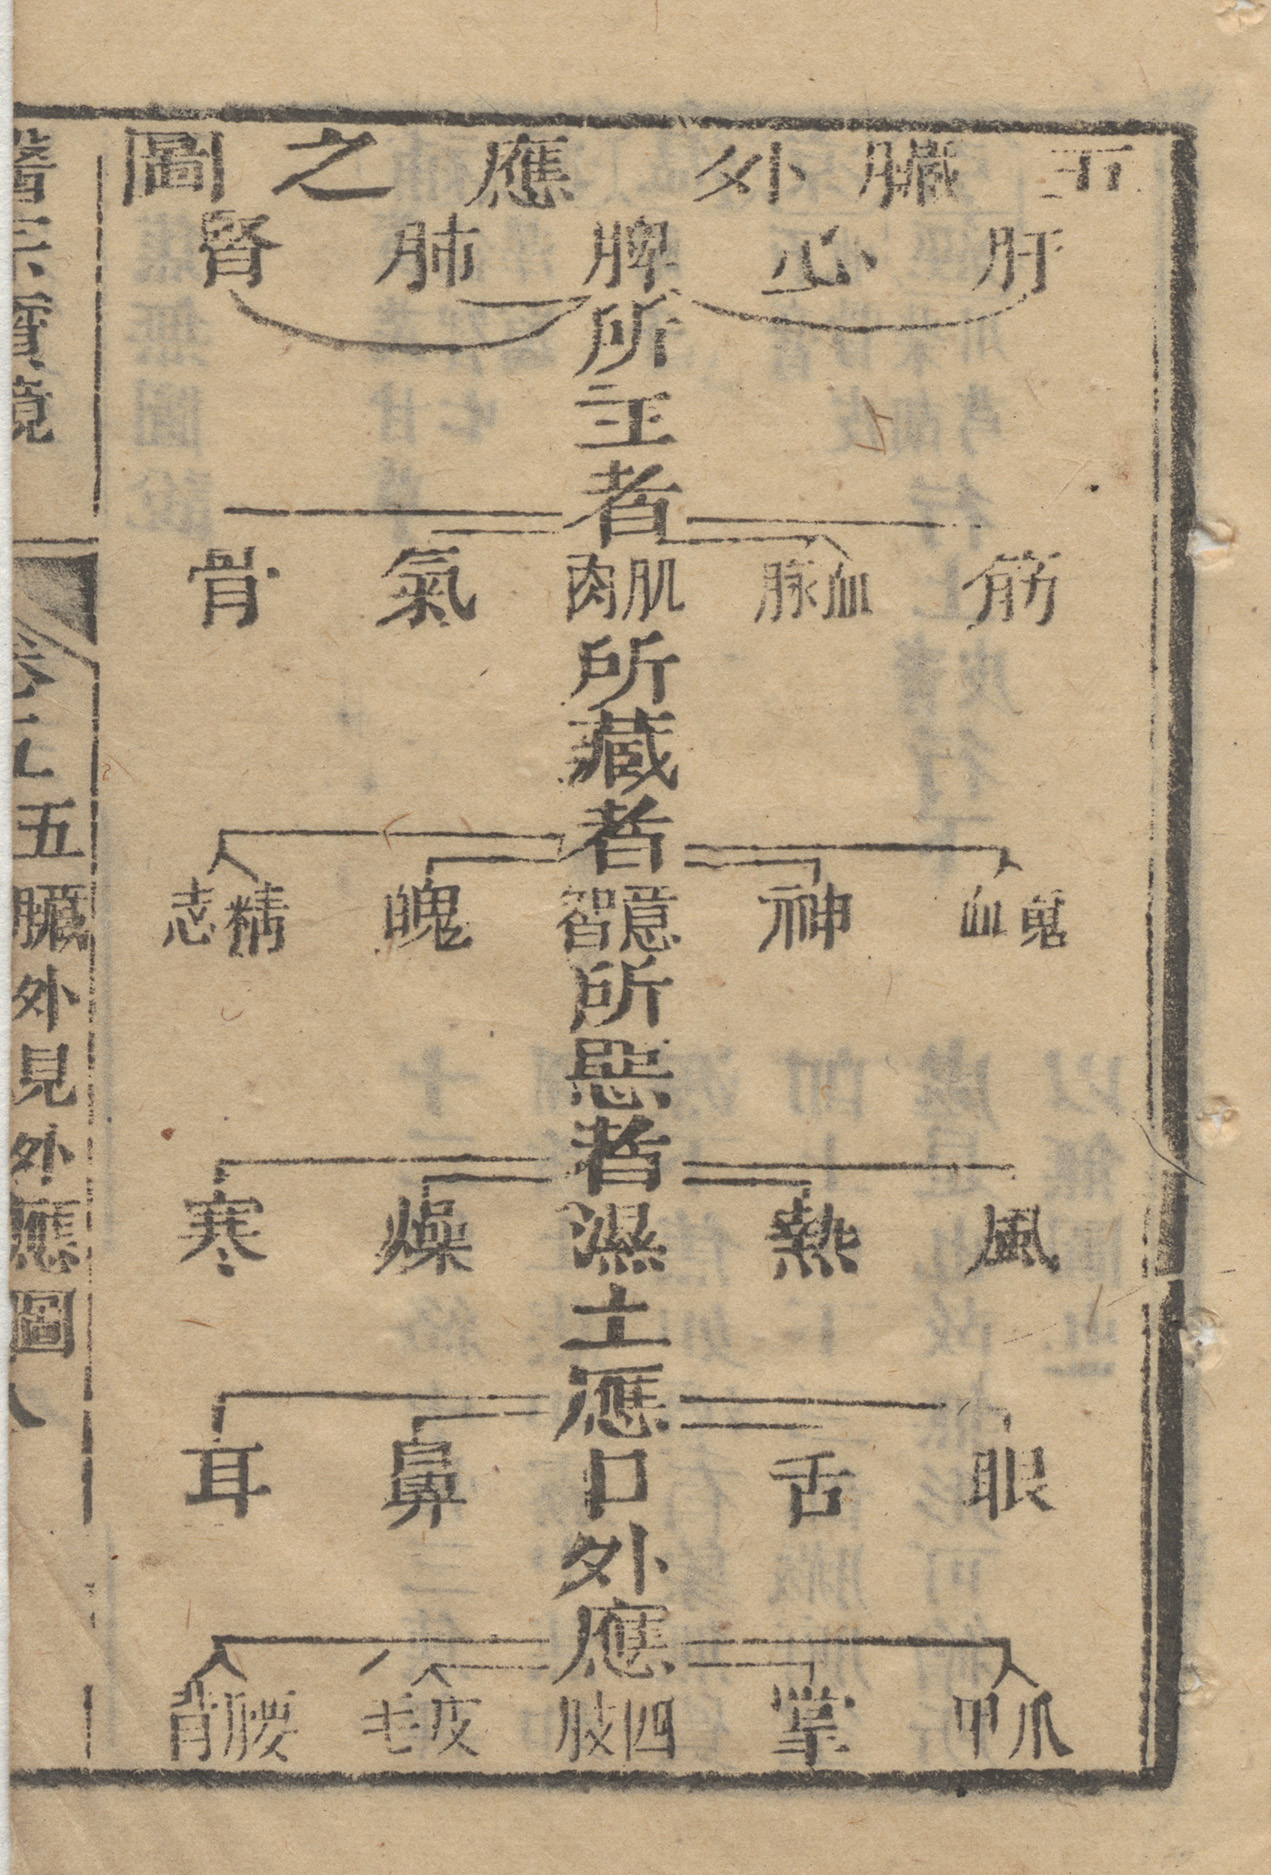 五臟外應之圖
肝 心 脾 肺 腎
所主者
筋 血脉 肌肉 氣 骨
所藏者
魂血 神 意智 魄 精志
所惡者
風 熱 濕土 燥 寒
應
眼 舌 口 鼻 耳
外應
爪甲 掌 四肢 皮毛 腰背
醫宗寶鏡
卷之五臟外見外應圖 八